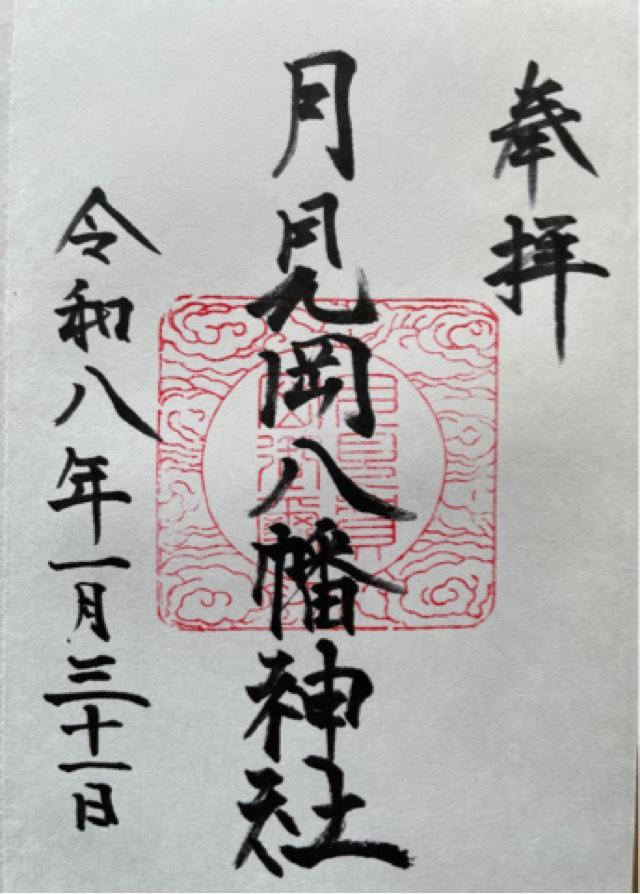 奉拝
月見岡八幡神社
令和八年一月三十一日